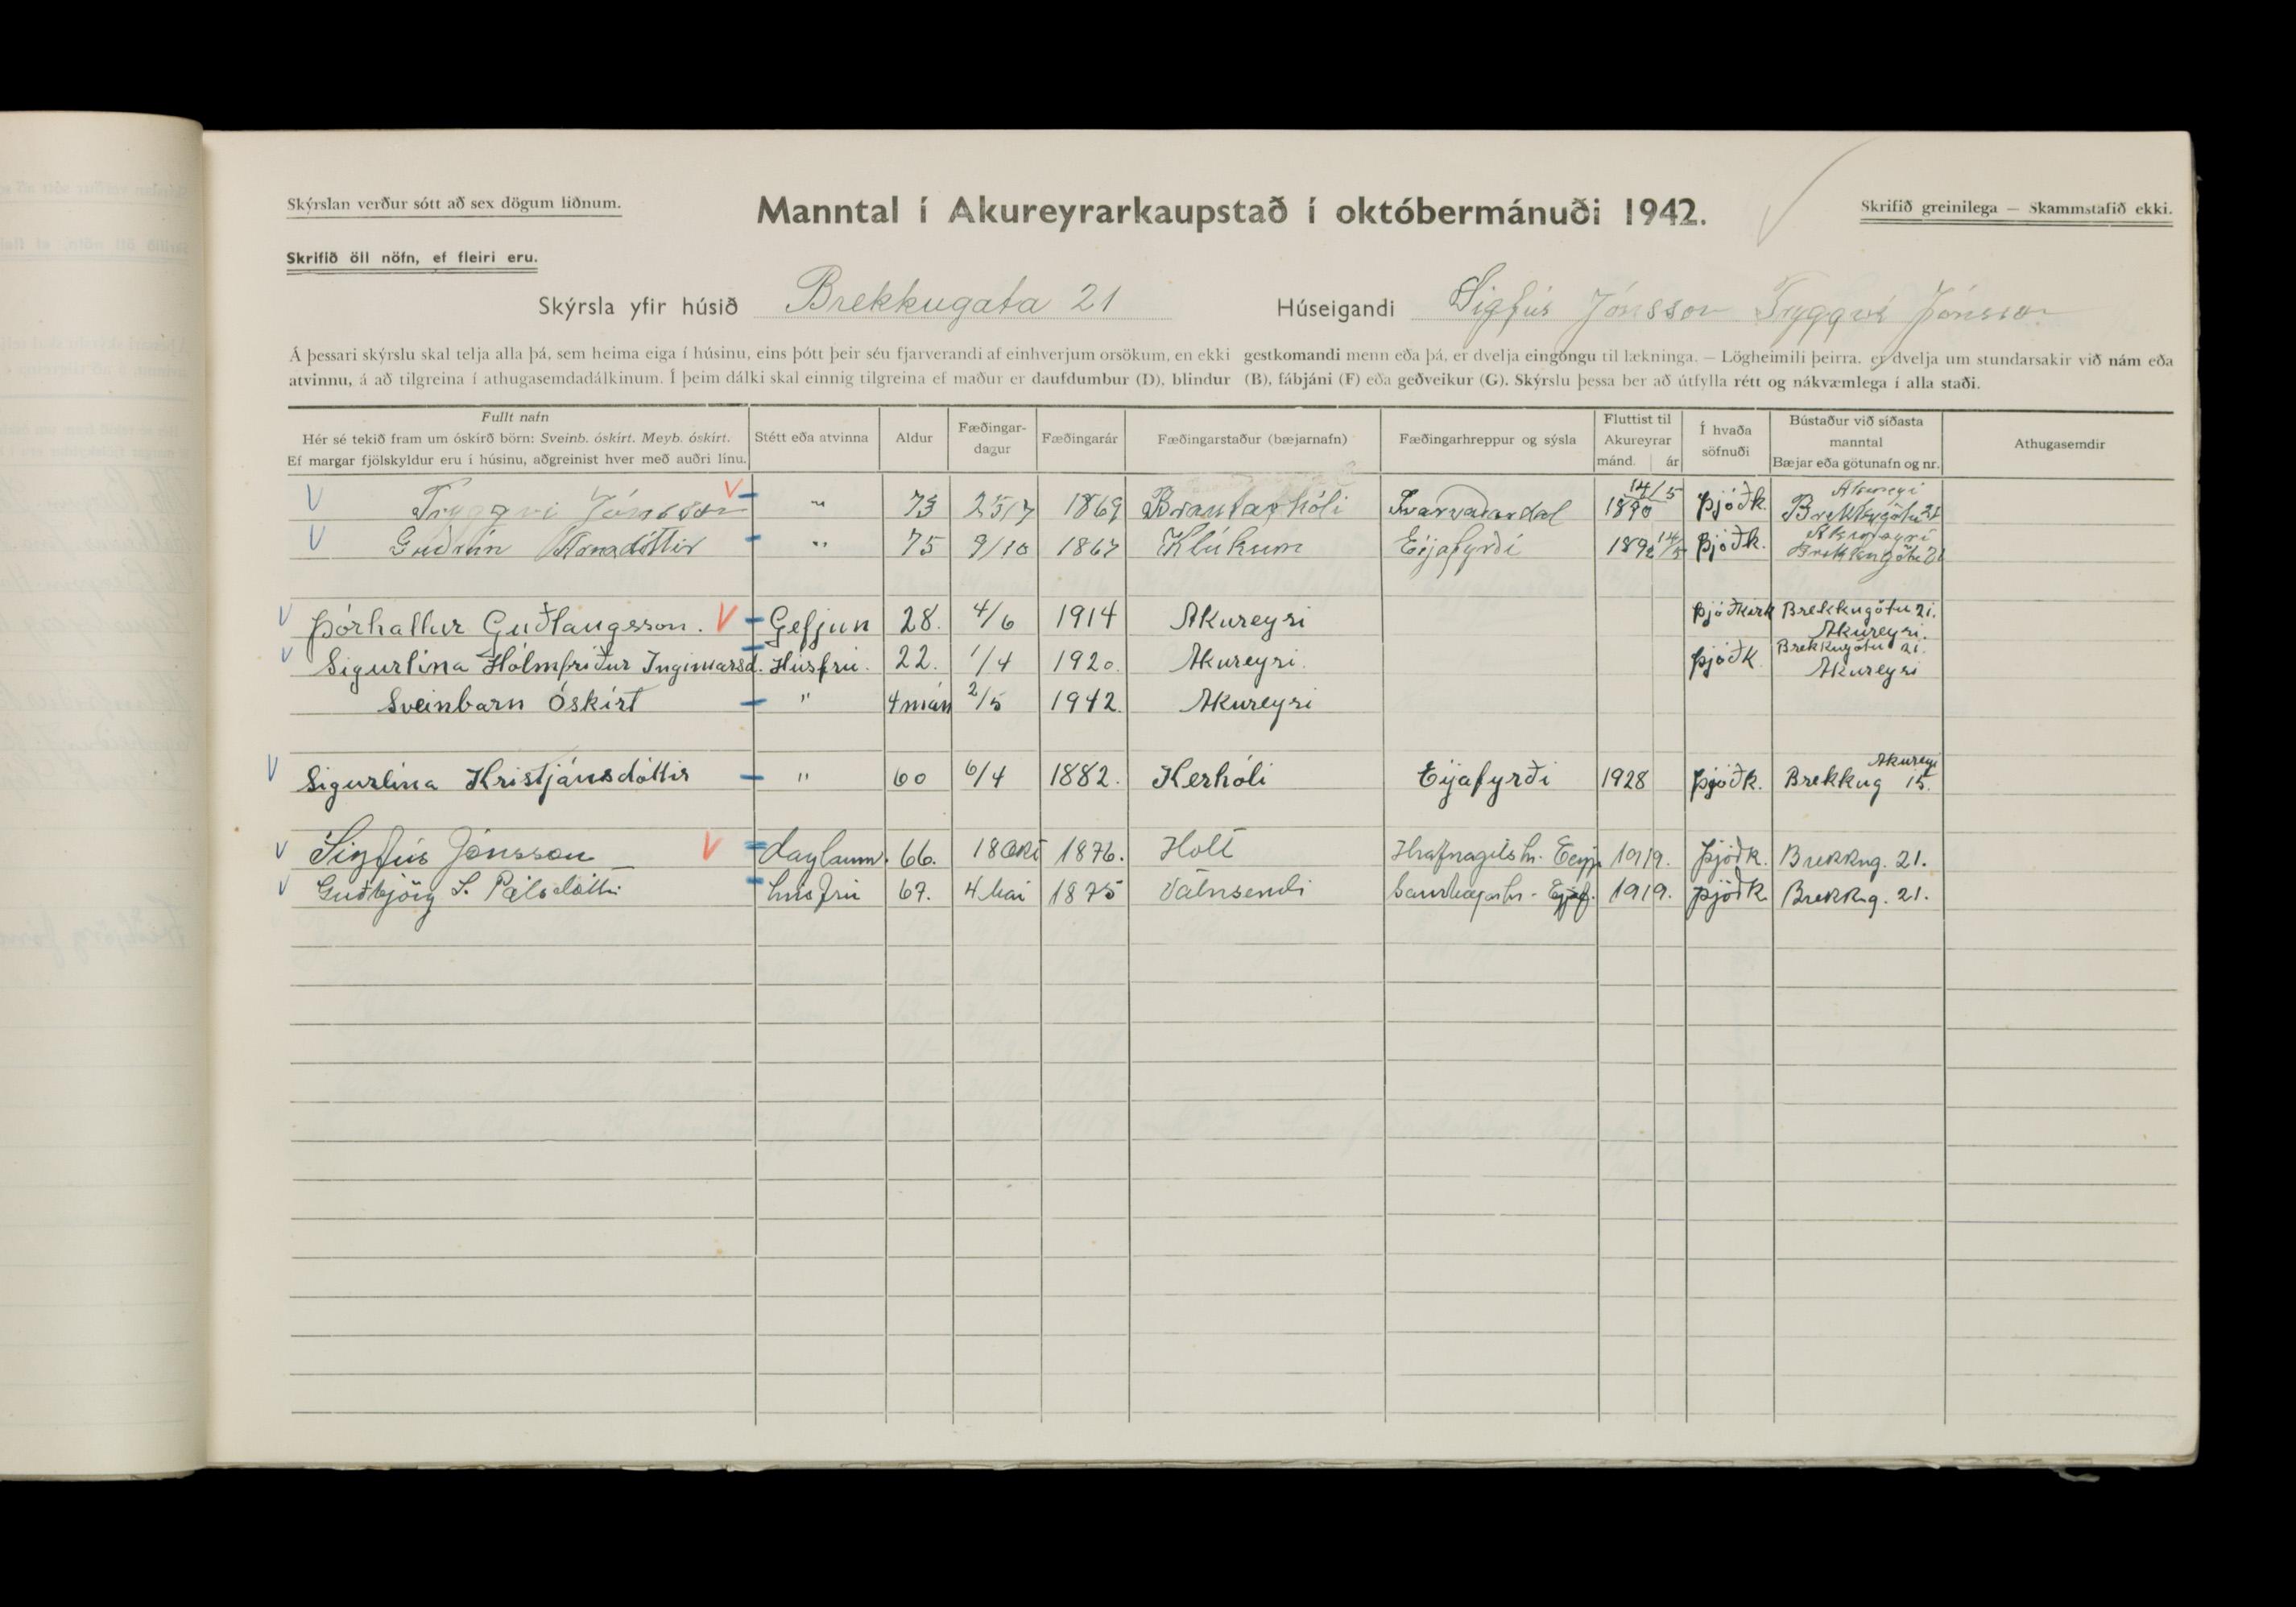 Skýrslan verður sótt að sex dögum liðnum.
Manntal í Akureyrarkaupstað í októbermánuði 1942.
Skrifið greinilega — Skammstafið ekki.
Skrifið öll nöfn, ef fleiri eru.
Skýrsla yfir húsið Brekkugata 21 Húseigandi Sigfús Jónsson Tryggvi Jónsson
Á þessari skýrslu skal telja alla þá, sem heima eiga í húsinu, eins þótt þeir séu fjarverandi af einhverjum orsökum, en ekki gestkomandi menn eða þá, er dvelja eingöngu til lækninga. — Lögheimili þeirra, er dvelja um stundarsakir við nám eða
atvinnu, á að tilgreina í athugasemdadálkinum. Í þeim dálki skal einnig tilgreina ef maður er daufdumbur (D), blindur (B), fábjáni (F) eða geðveikur (G). Skýrslu þessa ber að útfylla rétt og nákvæmlega í alla staði.
Fullt nafn
Hér sé tekið fram um óskírð börn: Sveinb. óskírt. Meyb. óskírt.
Ef margar fjölskyldur eru í húsinu, aðgreinist hver með auðri línu.
Stétt eða atvinna
Aldur
Fæðingar-
dagur
Fæðingarár
Fæðingarstaður (bæjarnafn)
Fæðingarhreppur og sýsla
Fluttist til
Akureyrar
mánd. ár
Í hvaða
söfnuði
Bústaður við síðasta
manntal
Bæjar eða götunafn og nr.
Athugasemdir
Tryggvi Jónsson " 73 25/7 1869 Svarvaðardal 14/5 1890 Þjóðk. Akureyri Brekkugötu 21
Guðrún " 75 9/10 1867 Klúkum Eijafyrði 14/5 Þjóðk. Akureyri Brekkugötu 21
Þórhallur Guðlaugsson. Gefjun 28. 4/6 1914 Akureyri Þjóðkirk Brekkugötu 21. Akureyri.
Sigurlína Hólmfríður Ingimarsd. Húsfrú. 22. 1/4 1920. Akureyri. Þjóðk Brekkugötu 21. Akureyri
Sveinbarn Óskírt " 4 mán 2/5 1942. Akureyri
Sigurlína Kristjánsdóttir " 60 6/4 1882. Kerhóli Eyjafyrði 1928 Þjóðk. Akureyri Brekkug 15.
Sigfús Jónsson Daglaunm. 66. 18 Okt 1876. Holt Hrafnagilshr. 1919. Þjóðk. Brekkug. 21.
Guðbjörg S. Pálsdóttir húsfrú 67. 4 Mai 1875 Vatnsendi 1919. Þjóðk Brekkug. 21.